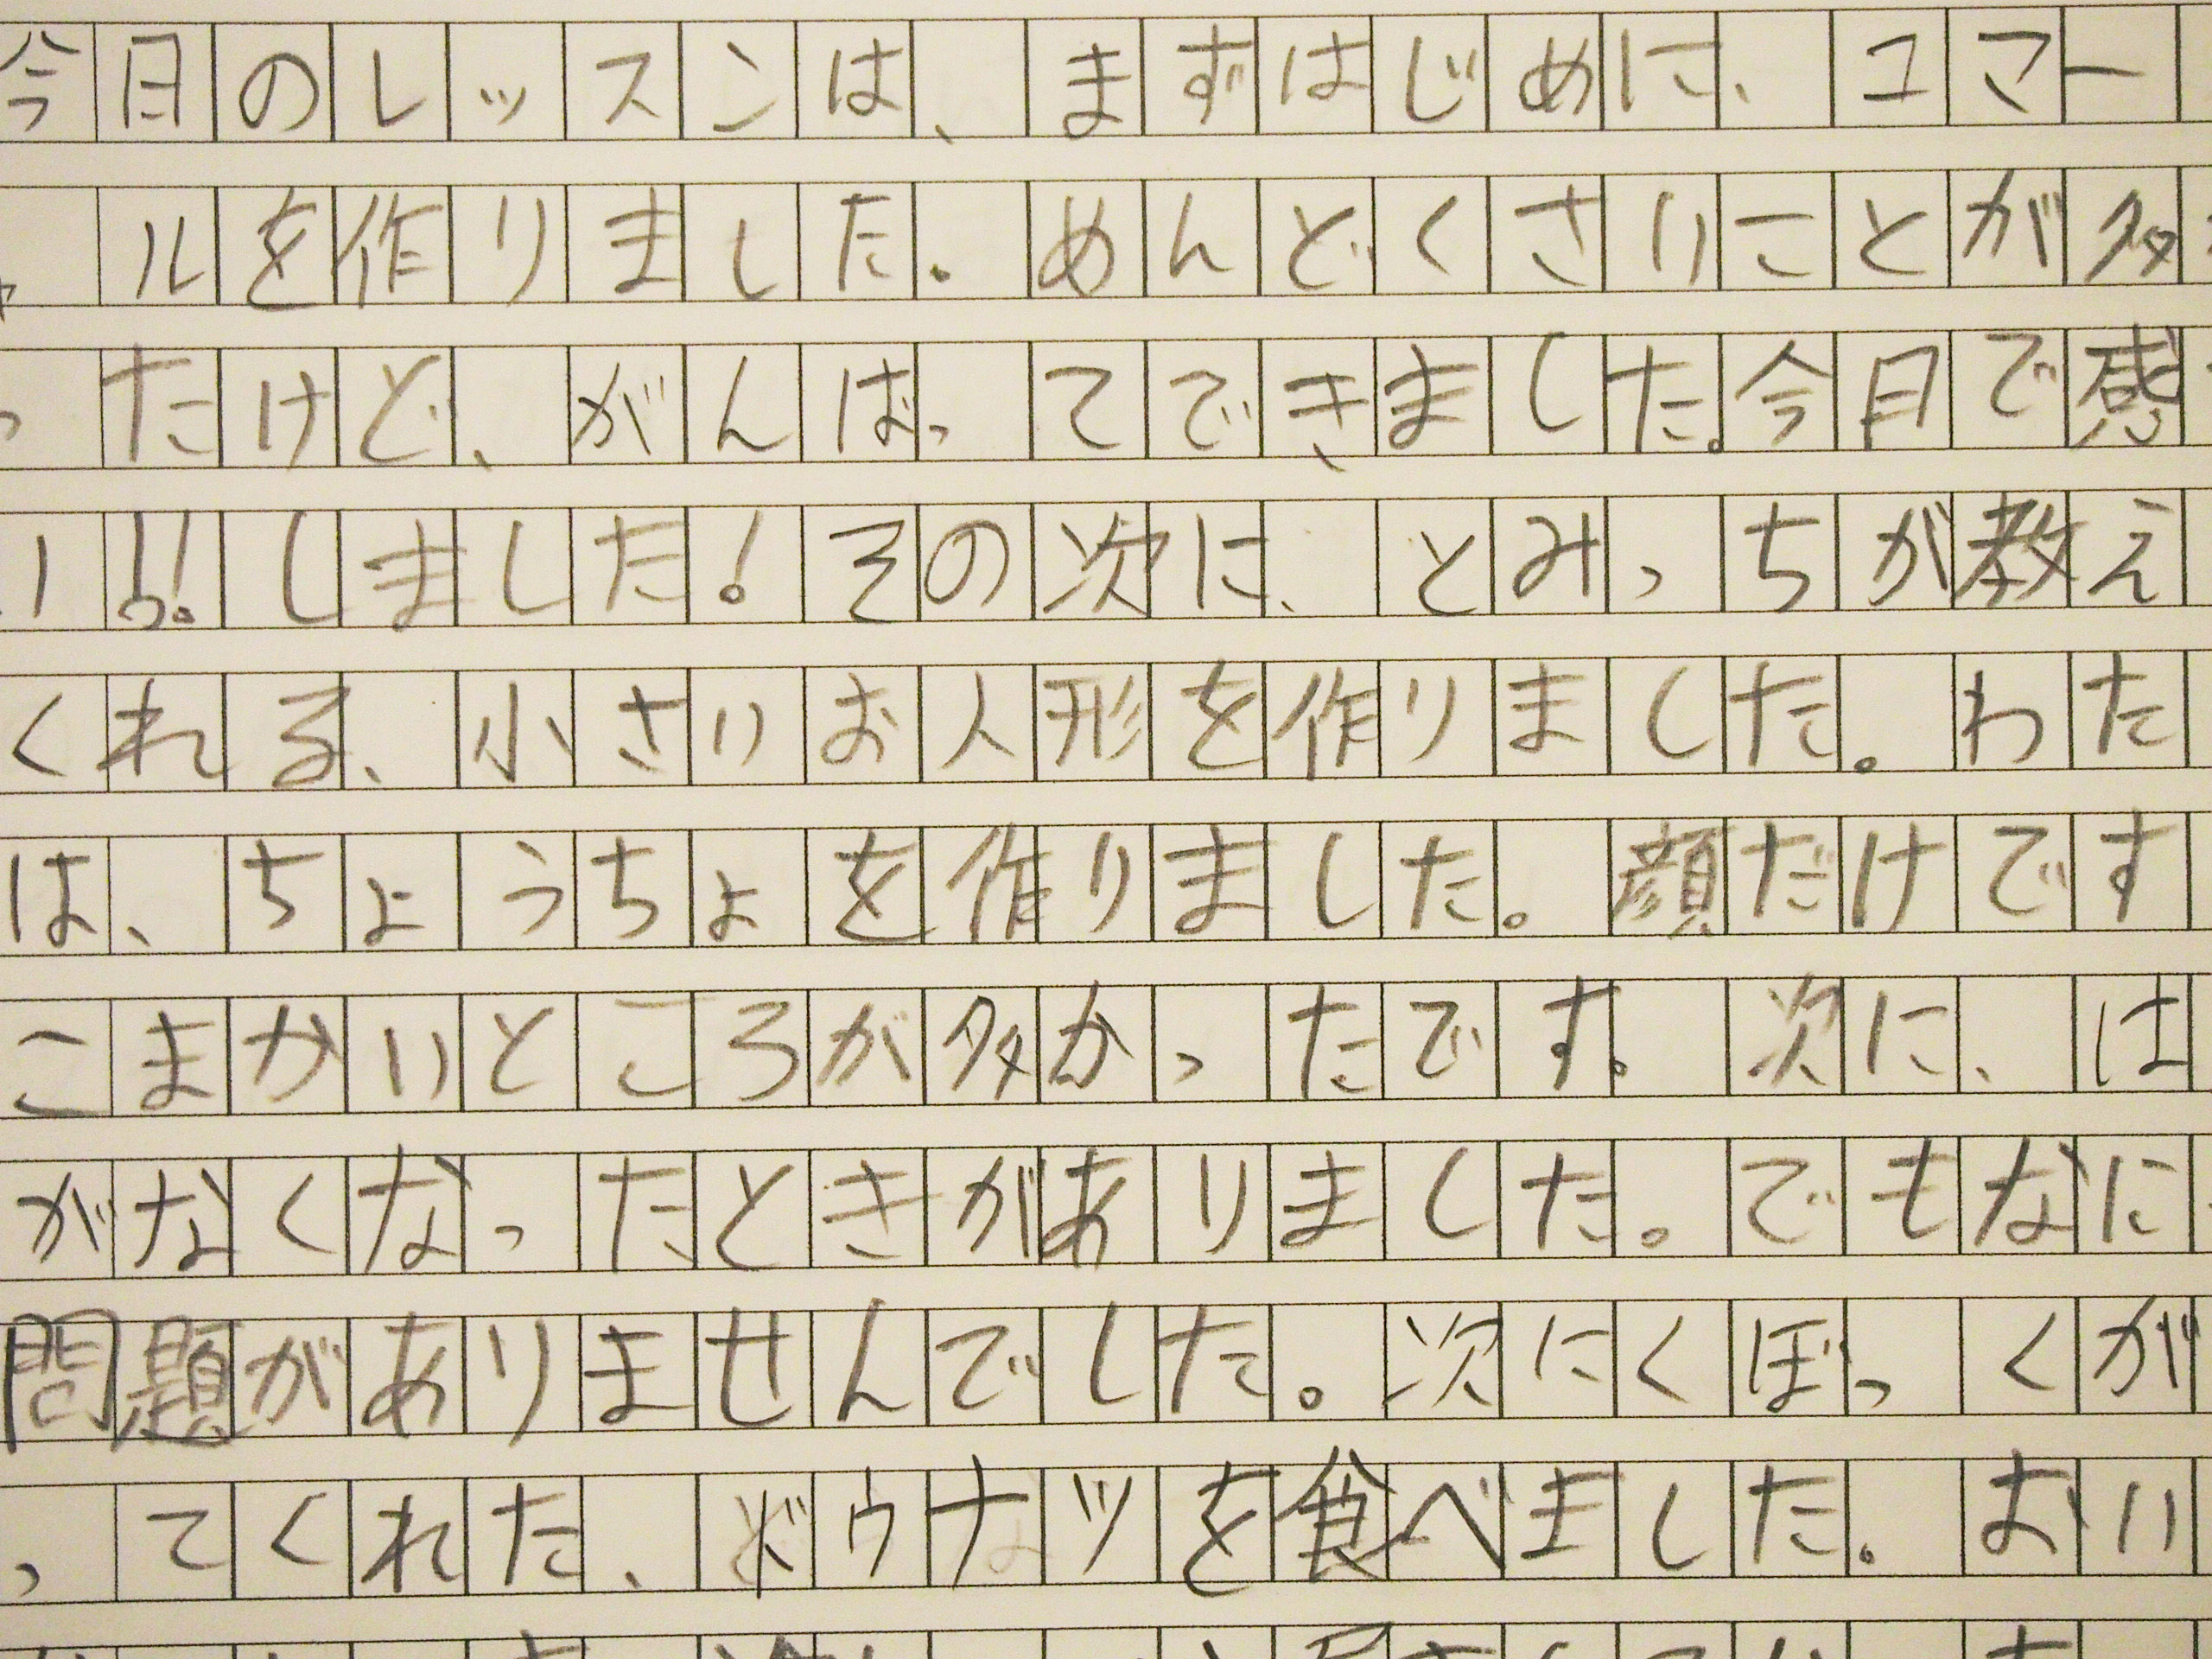 今日のレッスンは、まずはじめに、コマー
ルを作りました。めんどくさいことが多
ったけど、がんばってできました。今日で感
!!しました!その次に、とみっちが教え
くれる、小さいお人形を作りました。わた
は、ちょうちょを作りました。顔だけです
こまかいところが多かったです。次に、は
がなくなったときがありました。でもなに
問題がありませんでした。次にくぼっくが
ってくれた、ドゥナツを食べました。おい